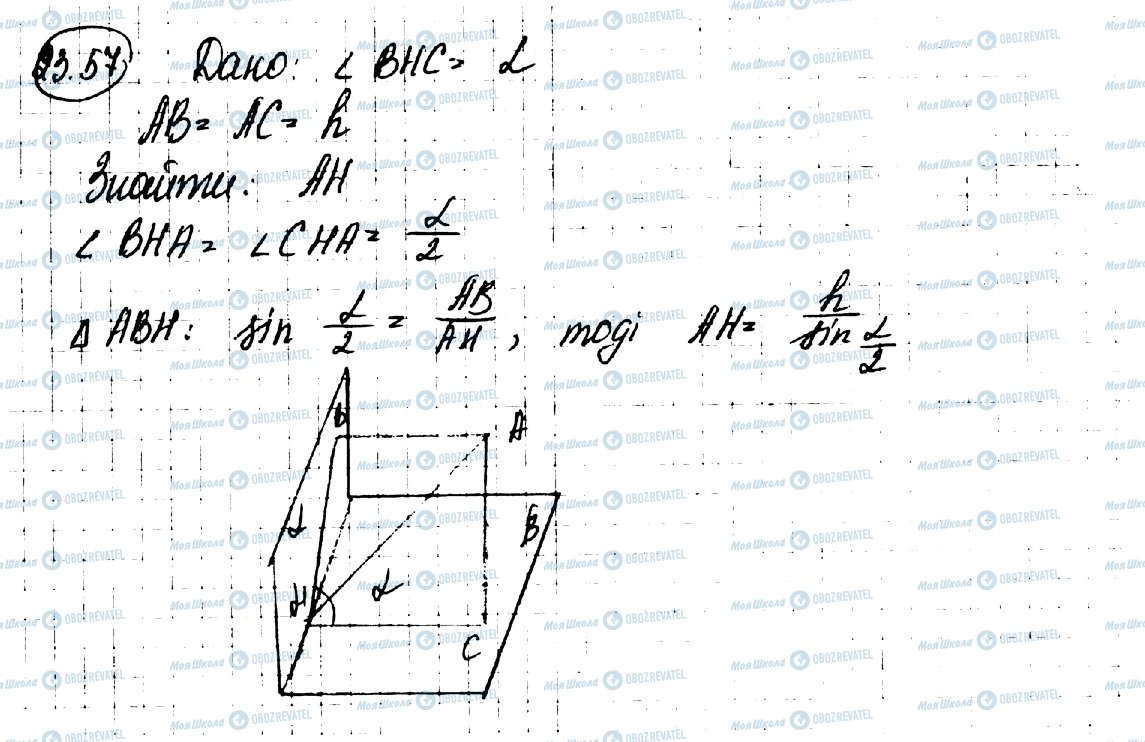 23.57) Дано: ∠ BHC = α
AB = AC = h
Знайти: AH
∠ BHA = ∠ CHA = α/2
Δ ABH: sin α/2 = AB/AH, тоді AH = h/sin α/2
b A
α β
H α
C
МояШкола OBOZREVATEL